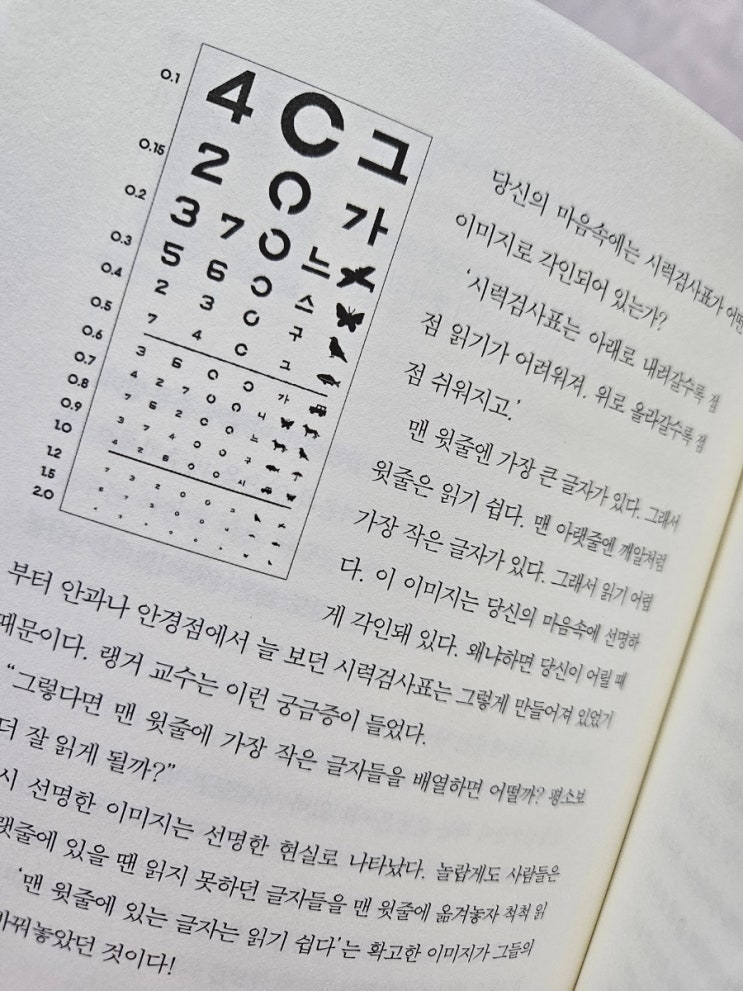 0.1 4 C 그
0.15 2 가
0.2 3 7 느
0.3 5 6 스
0.4 2 3 구
0.5 7 4 그
0.6 3 6 가
0.7 4 2 7 너
0.8 7 6 2 느
0.9 3 7 4 구
1.0 4 2 6 시
1.2
1.5
2.0
당신의 마음속에는 시력검사표가 어떤
이미지로 각인되어 있는가?
‘시력검사표는 아래로 내려갈수록 점
점 읽기가 어려워져. 위로 올라갈수록 점
점 쉬워지고.’
맨 윗줄엔 가장 큰 글자가 있다. 그래서
윗줄은 읽기 쉽다. 맨 아랫줄엔 깨알처럼
가장 작은 글자가 있다. 그래서 읽기 어렵
다. 이 이미지는 당신의 마음속에 선명하
게 각인돼 있다. 왜냐하면 당신이 어릴 때
부터 안과나 안경점에서 늘 보던 시력검사표는 그렇게 만들어져 있었기
때문이다. 랭거 교수는 이런 궁금증이 들었다.
“그렇다면 맨 윗줄에 가장 작은 글자들을 배열하면 어떨까? 평소보
더 잘 읽게 될까?”
시 선명한 이미지는 선명한 현실로 나타났다. 놀랍게도 사람들은
랫줄에 있을 땐 읽지 못하던 글자들을 맨 윗줄에 옮겨놓자 척척 읽
‘맨 윗줄에 있는 글자는 읽기 쉽다’는 확고한 이미지가 그들의
바꿔놓았던 것이다!